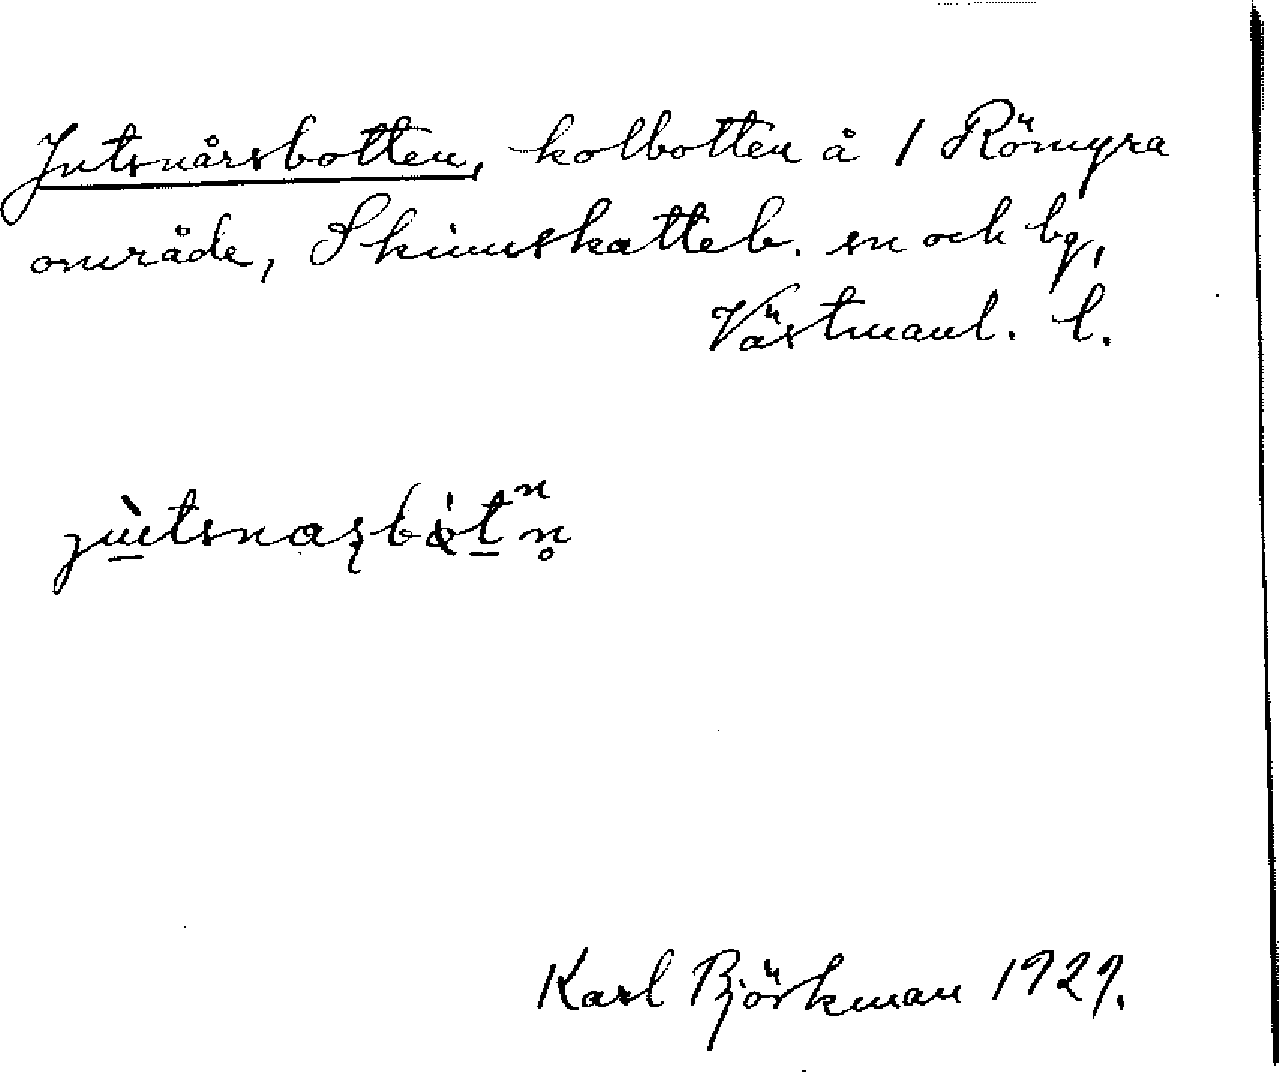 Jutsnårsbotten, kolbotten å 1 Römyra
område, Skinnskatteb. sn och bg,
Västmanl. l.
jùtsnaʂbòtn̥
Karl Björkman 1929.